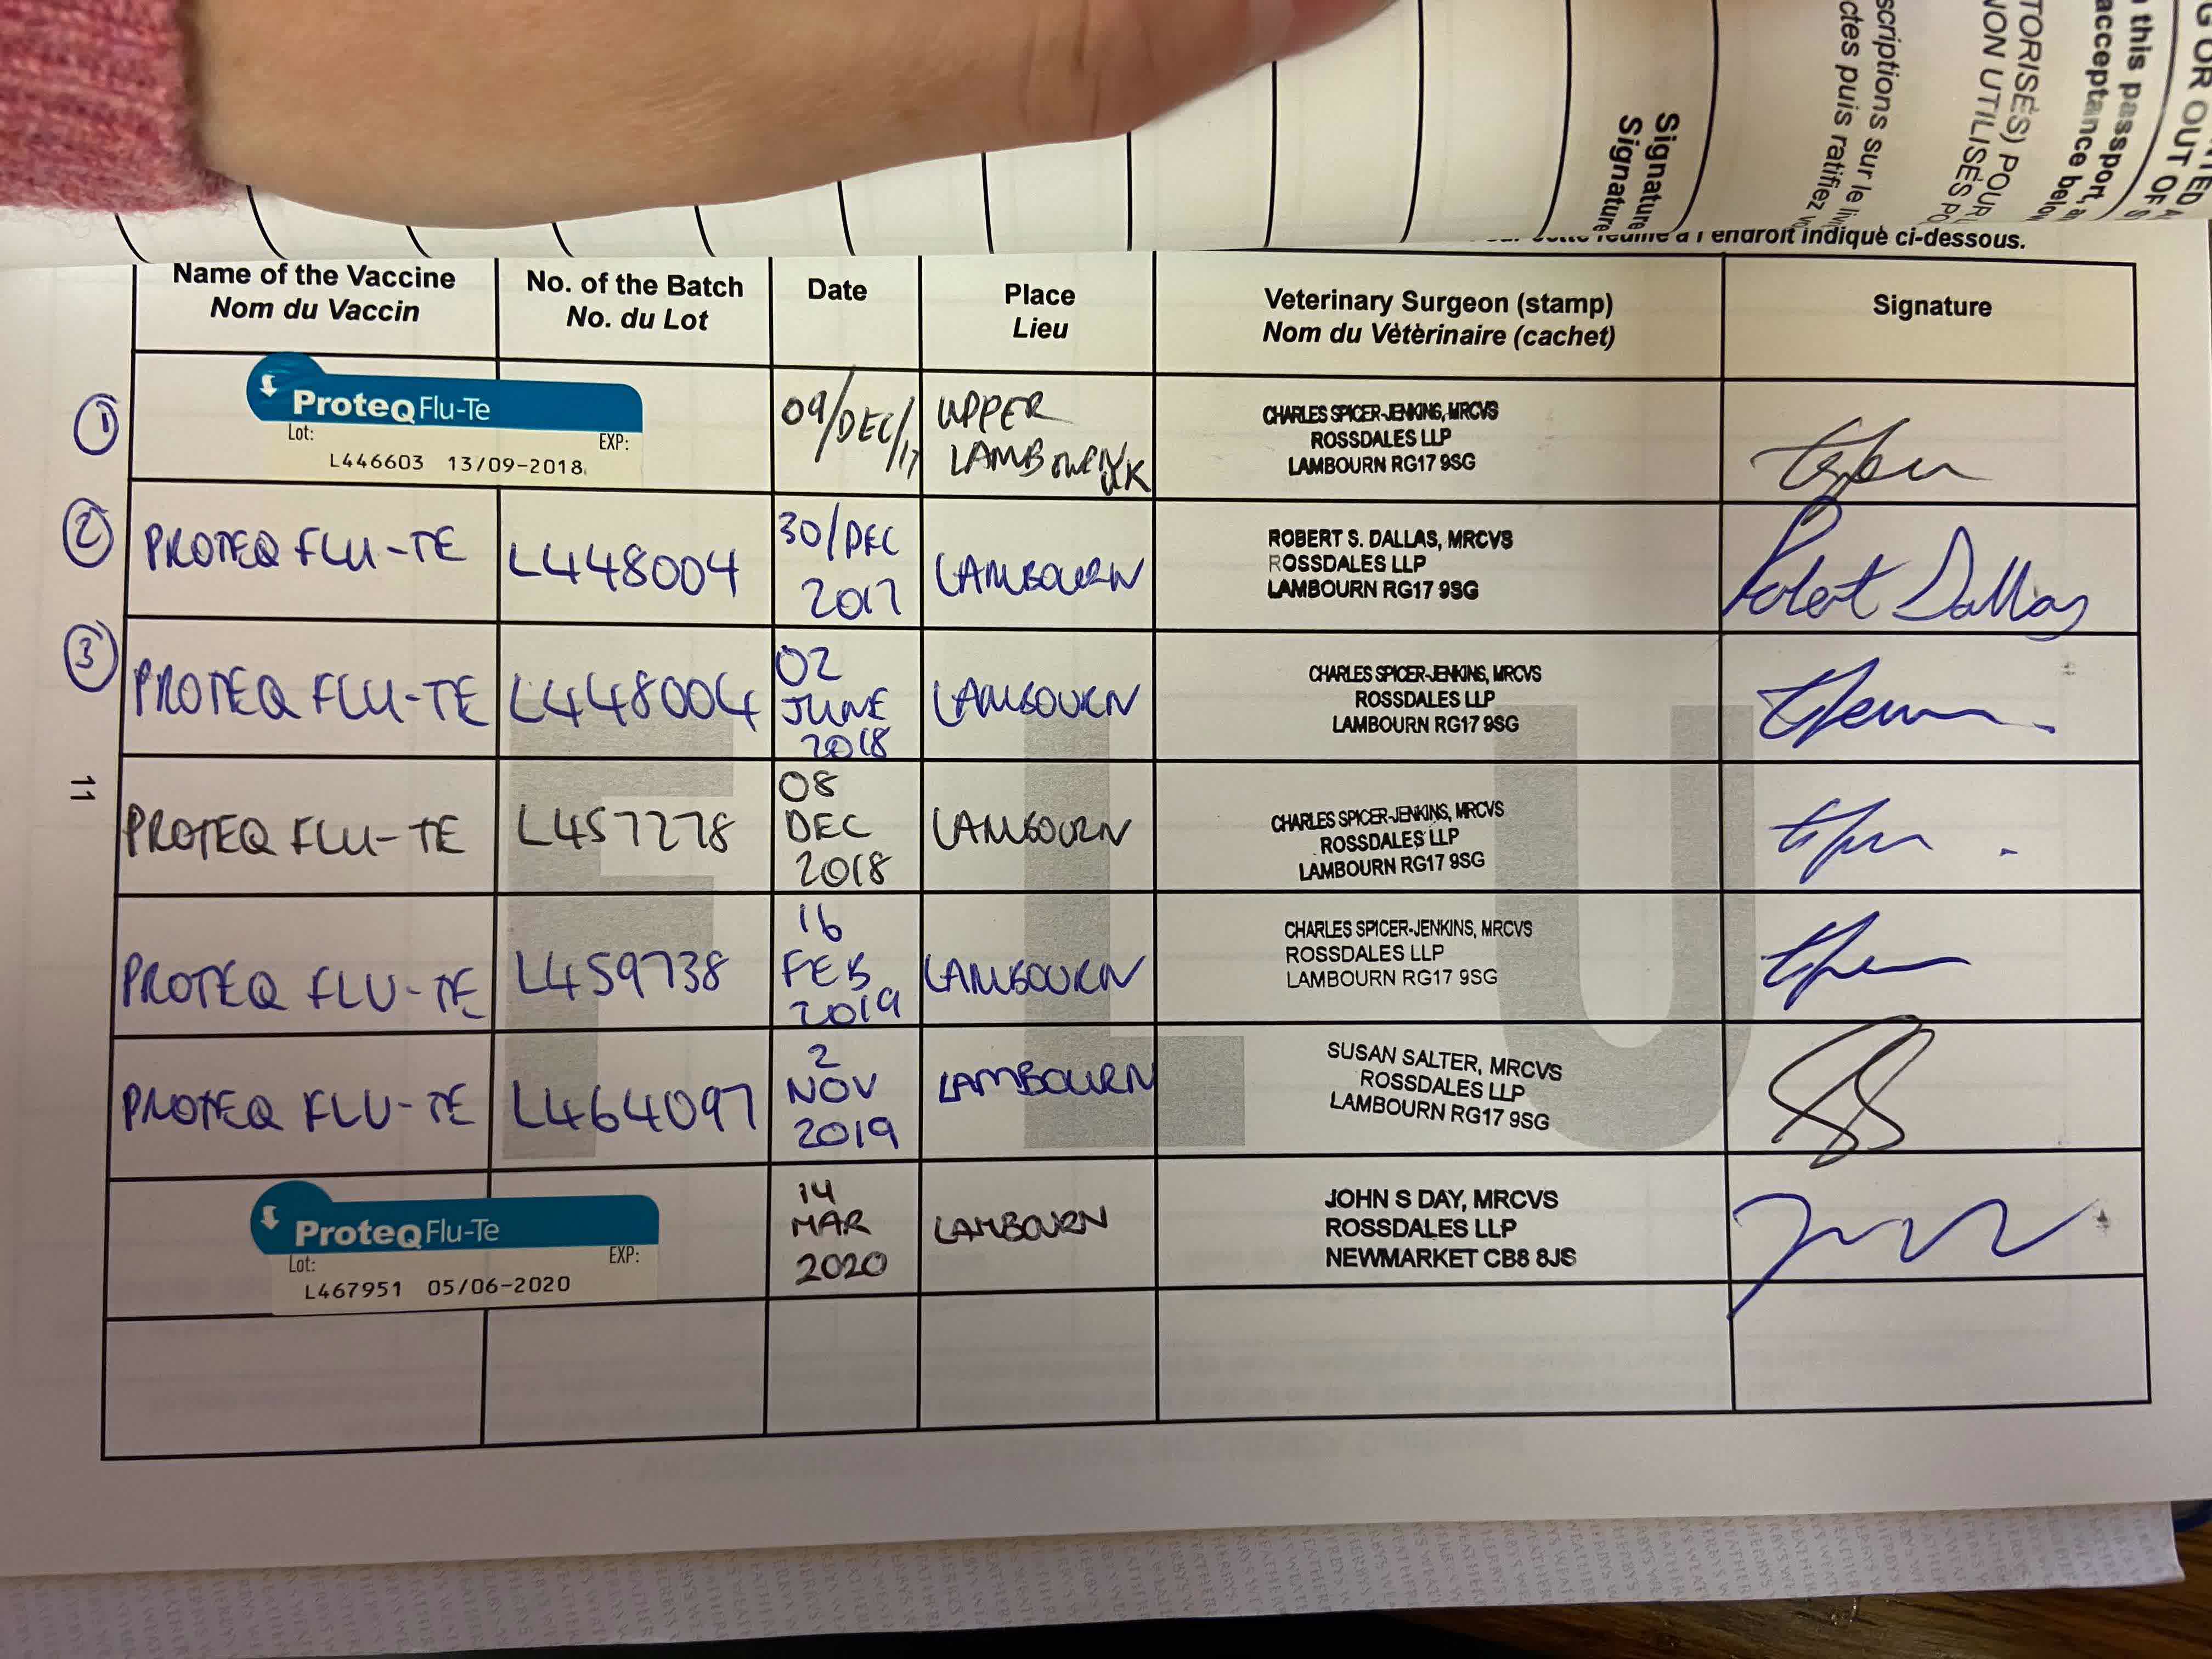 G OR OUT OF S
this passport, a
acceptance below
TORISÉS) POUR
NON UTILISÉS PO
scriptions sur le liv
ctes puis ratifiez v
Signature
Signature
feuille à l'endroit indiqué ci-dessous.
Name of the Vaccine
Nom du Vaccin
No. of the Batch
No. du Lot
Date
Place
Lieu
Veterinary Surgeon (stamp)
Nom du Vètèrinaire (cachet)
Signature
1
ProteQ Flu-Te
Lot: EXP:
L446603 13/09-2018
09/DEC/17
UPPER
LAMBOURN UK
CHARLES SPICER-JENKINS, MRCVS
ROSSDALES LLP
LAMBOURN RG17 9SG
2
PROTEQ FLU-TE
L448004
30/DEC
2017
LAMBOURN
ROBERT S. DALLAS, MRCVS
ROSSDALES LLP
LAMBOURN RG17 9SG
Robert Dallas
3
PROTEQ FLU-TE
L448004
02
JUNE
2018
LAMBOURN
CHARLES SPICER-JENKINS, MRCVS
ROSSDALES LLP
LAMBOURN RG17 9SG
11
PROTEQ FLU-TE
L457278
08
DEC
2018
LAMBOURN
CHARLES SPICER-JENKINS, MRCVS
ROSSDALES LLP
LAMBOURN RG17 9SG
PROTEQ FLU-TE
L459738
16
FEB
2019
LAMBOURN
CHARLES SPICER-JENKINS, MRCVS
ROSSDALES LLP
LAMBOURN RG17 9SG
PROTEQ FLU-TE
L464097
2
NOV
2019
LAMBOURN
SUSAN SALTER, MRCVS
ROSSDALES LLP
LAMBOURN RG17 9SG
ProteQ Flu-Te
Lot: EXP:
L467951 05/06-2020
14
MAR
2020
LAMBOURN
JOHN S DAY, MRCVS
ROSSDALES LLP
NEWMARKET CB8 8JS
FLU